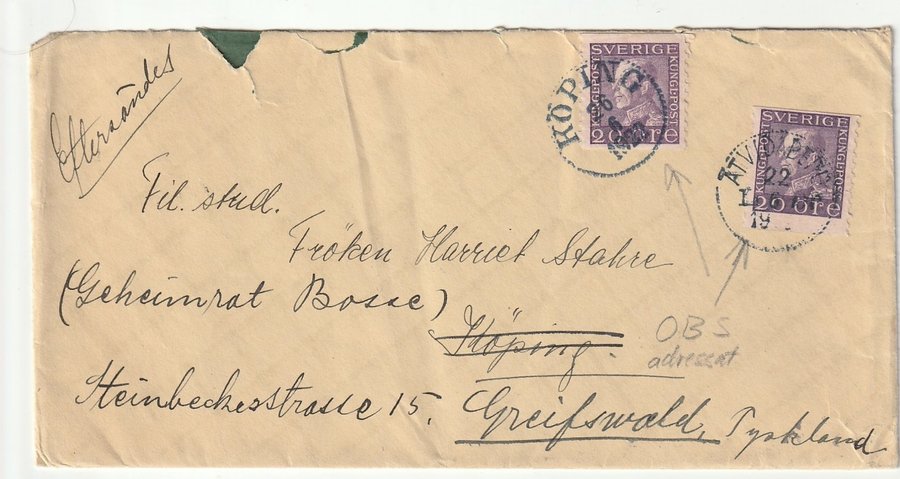 Eftersändes
KÖPING
26
6
SVERIGE
KUNGEPOST
KUNGEPOST
20 ÖRE
SVERIGE
KUNGEPOST
KUNGEPOST
20 ÖRE
22
19
Fil. stud.
Fröken Harriet Stahre
(Geheimrat Bosse)
Köping.
OBS
adressat
Steinbeckerstrasse 15.
Greifswald, Tyskland